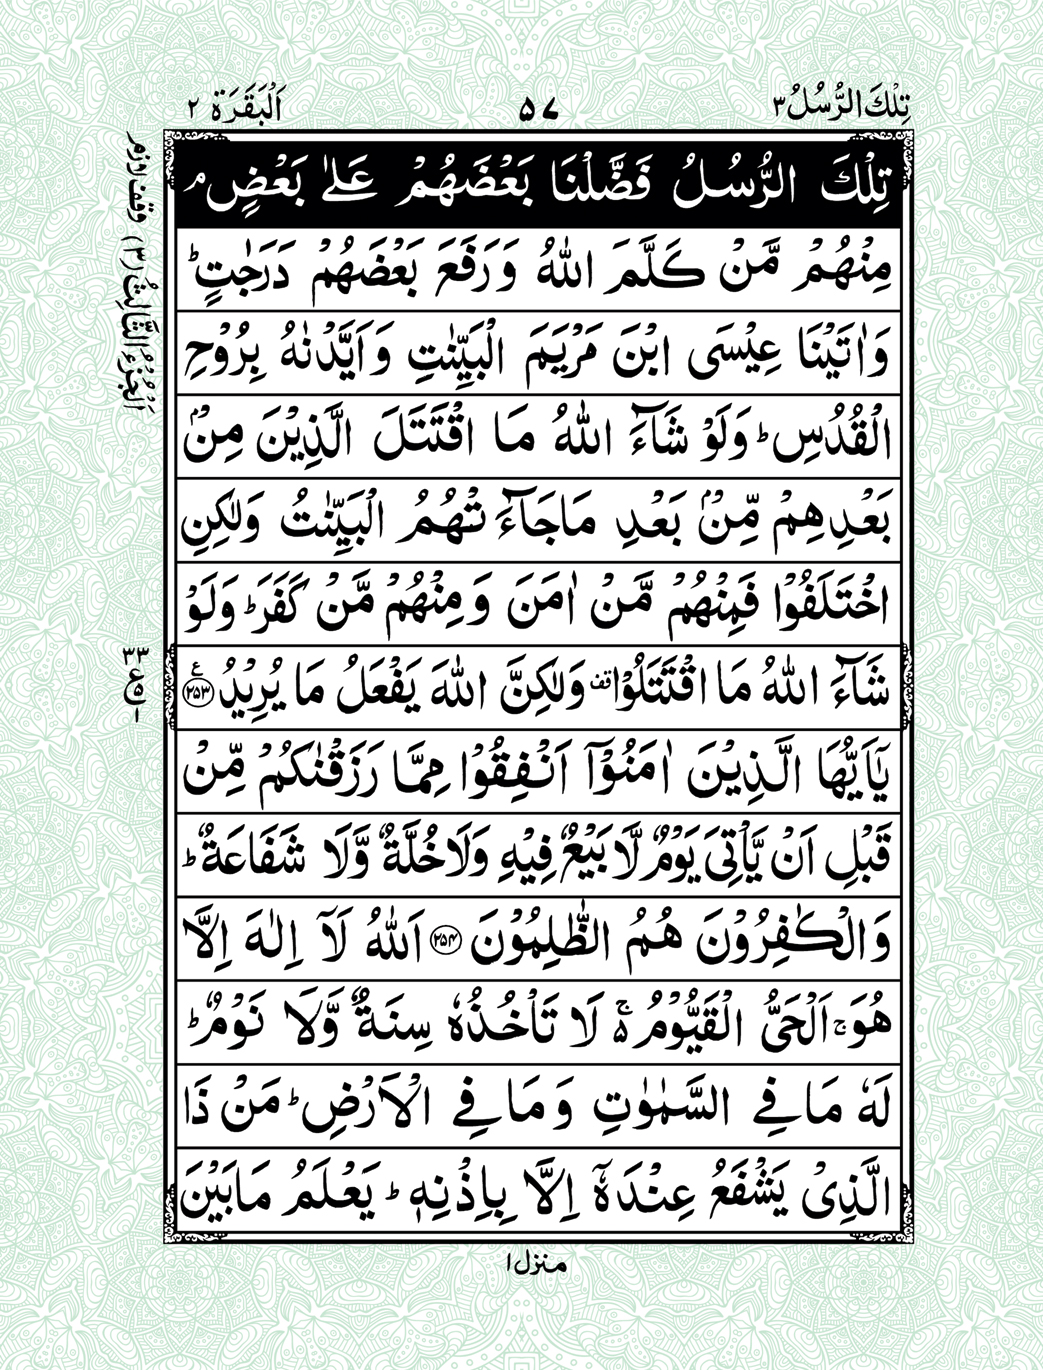 تِلْكَ الرُّسُلُ ٣ ٥٧ اَلْبَقَرَة ٢
تِلْكَ الرُّسُلُ فَضَّلْنَا بَعْضَهُمْ عَلٰى بَعْضٍ ۘ
مِنْهُمْ مَّنْ كَلَّمَ اللّٰهُ وَرَفَعَ بَعْضَهُمْ دَرَجٰتٍ ؕ
وَاٰتَيْنَا عِيْسَى ابْنَ مَرْيَمَ الْبَيِّنٰتِ وَاَيَّدْنٰهُ بِرُوْحِ
الْقُدُسِ ؕ وَلَوْ شَآءَ اللّٰهُ مَا اقْتَتَلَ الَّذِيْنَ مِنْۢ
بَعْدِهِمْ مِّنْۢ بَعْدِ مَا جَآءَتْهُمُ الْبَيِّنٰتُ وَلٰكِنِ
اخْتَلَفُوْا فَمِنْهُمْ مَّنْ اٰمَنَ وَمِنْهُمْ مَّنْ كَفَرَ ؕ وَلَوْ
شَآءَ اللّٰهُ مَا اقْتَتَلُوْا قف وَلٰكِنَّ اللّٰهَ يَفْعَلُ مَا يُرِيْدُ ع ﴿٢٥٣﴾
يٰۤاَيُّهَا الَّذِيْنَ اٰمَنُوْۤا اَنْفِقُوْا مِمَّا رَزَقْنٰكُمْ مِّنْ
قَبْلِ اَنْ يَّاْتِيَ يَوْمٌ لَّا بَيْعٌ فِيْهِ وَلَا خُلَّةٌ وَّلَا شَفَاعَةٌ ؕ
وَالْكٰفِرُوْنَ هُمُ الظّٰلِمُوْنَ ﴿٢٥٤﴾ اَللّٰهُ لَاۤ اِلٰهَ اِلَّا
هُوَ ۚ اَلْحَيُّ الْقَيُّوْمُ ۬ۚ لَا تَاْخُذُهٗ سِنَةٌ وَّلَا نَوْمٌ ؕ
لَهٗ مَا فِي السَّمٰوٰتِ وَمَا فِي الْاَرْضِ ؕ مَنْ ذَا
الَّذِيْ يَشْفَعُ عِنْدَهٗۤ اِلَّا بِاِذْنِهٖ ؕ يَعْلَمُ مَا بَيْنَ
اَلْجُزْءُ الثَّالِثُ (٣) وقف لازم
٣٣ ع
منزل ١